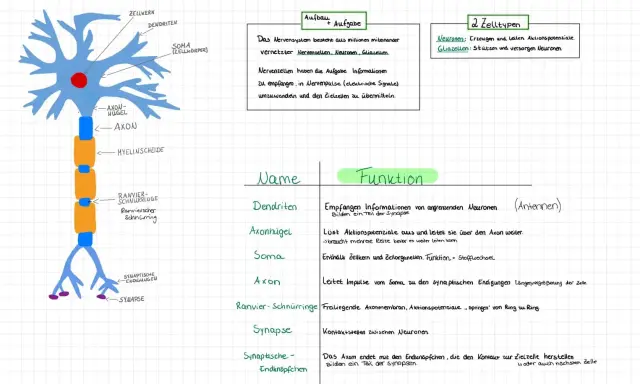 ZELLKERN
DENDRITEN
SOMA
(ZELLKÖRPER)
AXON-
HÜGEL
AXON
MYELINSCHEIDE
RANVIER-
SCHNÜRRINGE
Ranvierscher
Schnürring
SYNAPTISCHE
ENDIGUNGEN
SYNAPSE
Aufbau
+ Aufgabe
Das Nervensystem besteht aus milionen miteinander
vernetzter Nervenzellen, Neuronen, Gliazellen
Nervenzellen haben die Aufgabe Informationen
zu empfangen, in Nervenimpulse (elektrische Signale)
umzuwandeln und den Zielzellen zu übermitteln.
2 Zelltypen
Neuronen: Erzeugen und leiten Aktionspotentiale
Gliazellen: Stützen und versorgen Neuronen
Name Funktion
Dendriten Empfangen Informationen von angrenzenden Neuronen (Antennen)
Bilden ein Teil der Synapse
Axonhügel Löst Aktionspotentiale aus und leitet sie über den Axon weiter
braucht mehrere Reize bevor es weiter leiten kann
Soma Enthält Zellkern und Zellorganellen. Funktion - Stoffwechsel
Axon Leitet Impulse vom Soma zu den synaptischen Endigungen
Ranvier-Schnürringe Freiliegende Axonmembran, Aktionspotentiale "springen" von Ring zu Ring
Synapse Kontaktstellen zwischen Neuronen
Synaptische- Das Axon endet mit den Endknöpfchen, die den Kontakt zur Zielzelle herstellen
Endknöpfchen Bilden ein Teil der Synapsen oder auch nächsten Zelle